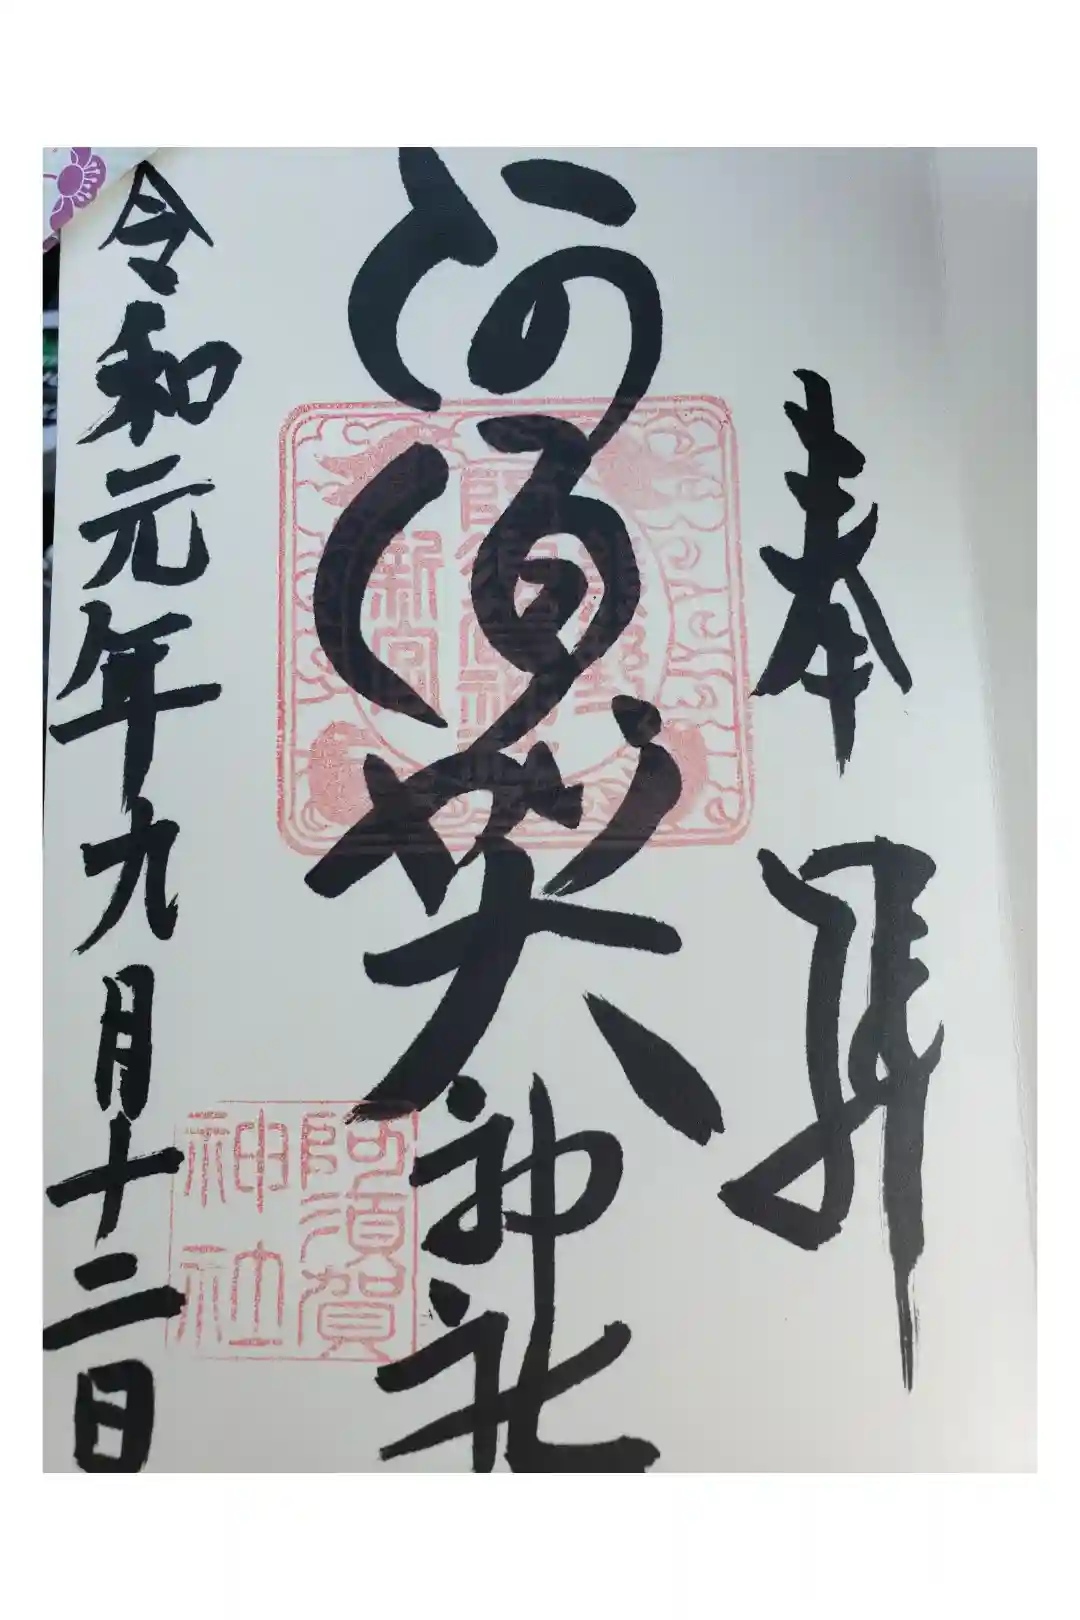 奉拝
阿須賀神社
熊野
阿須賀神社
新宮
阿須賀
神社
令和元年九月十二日